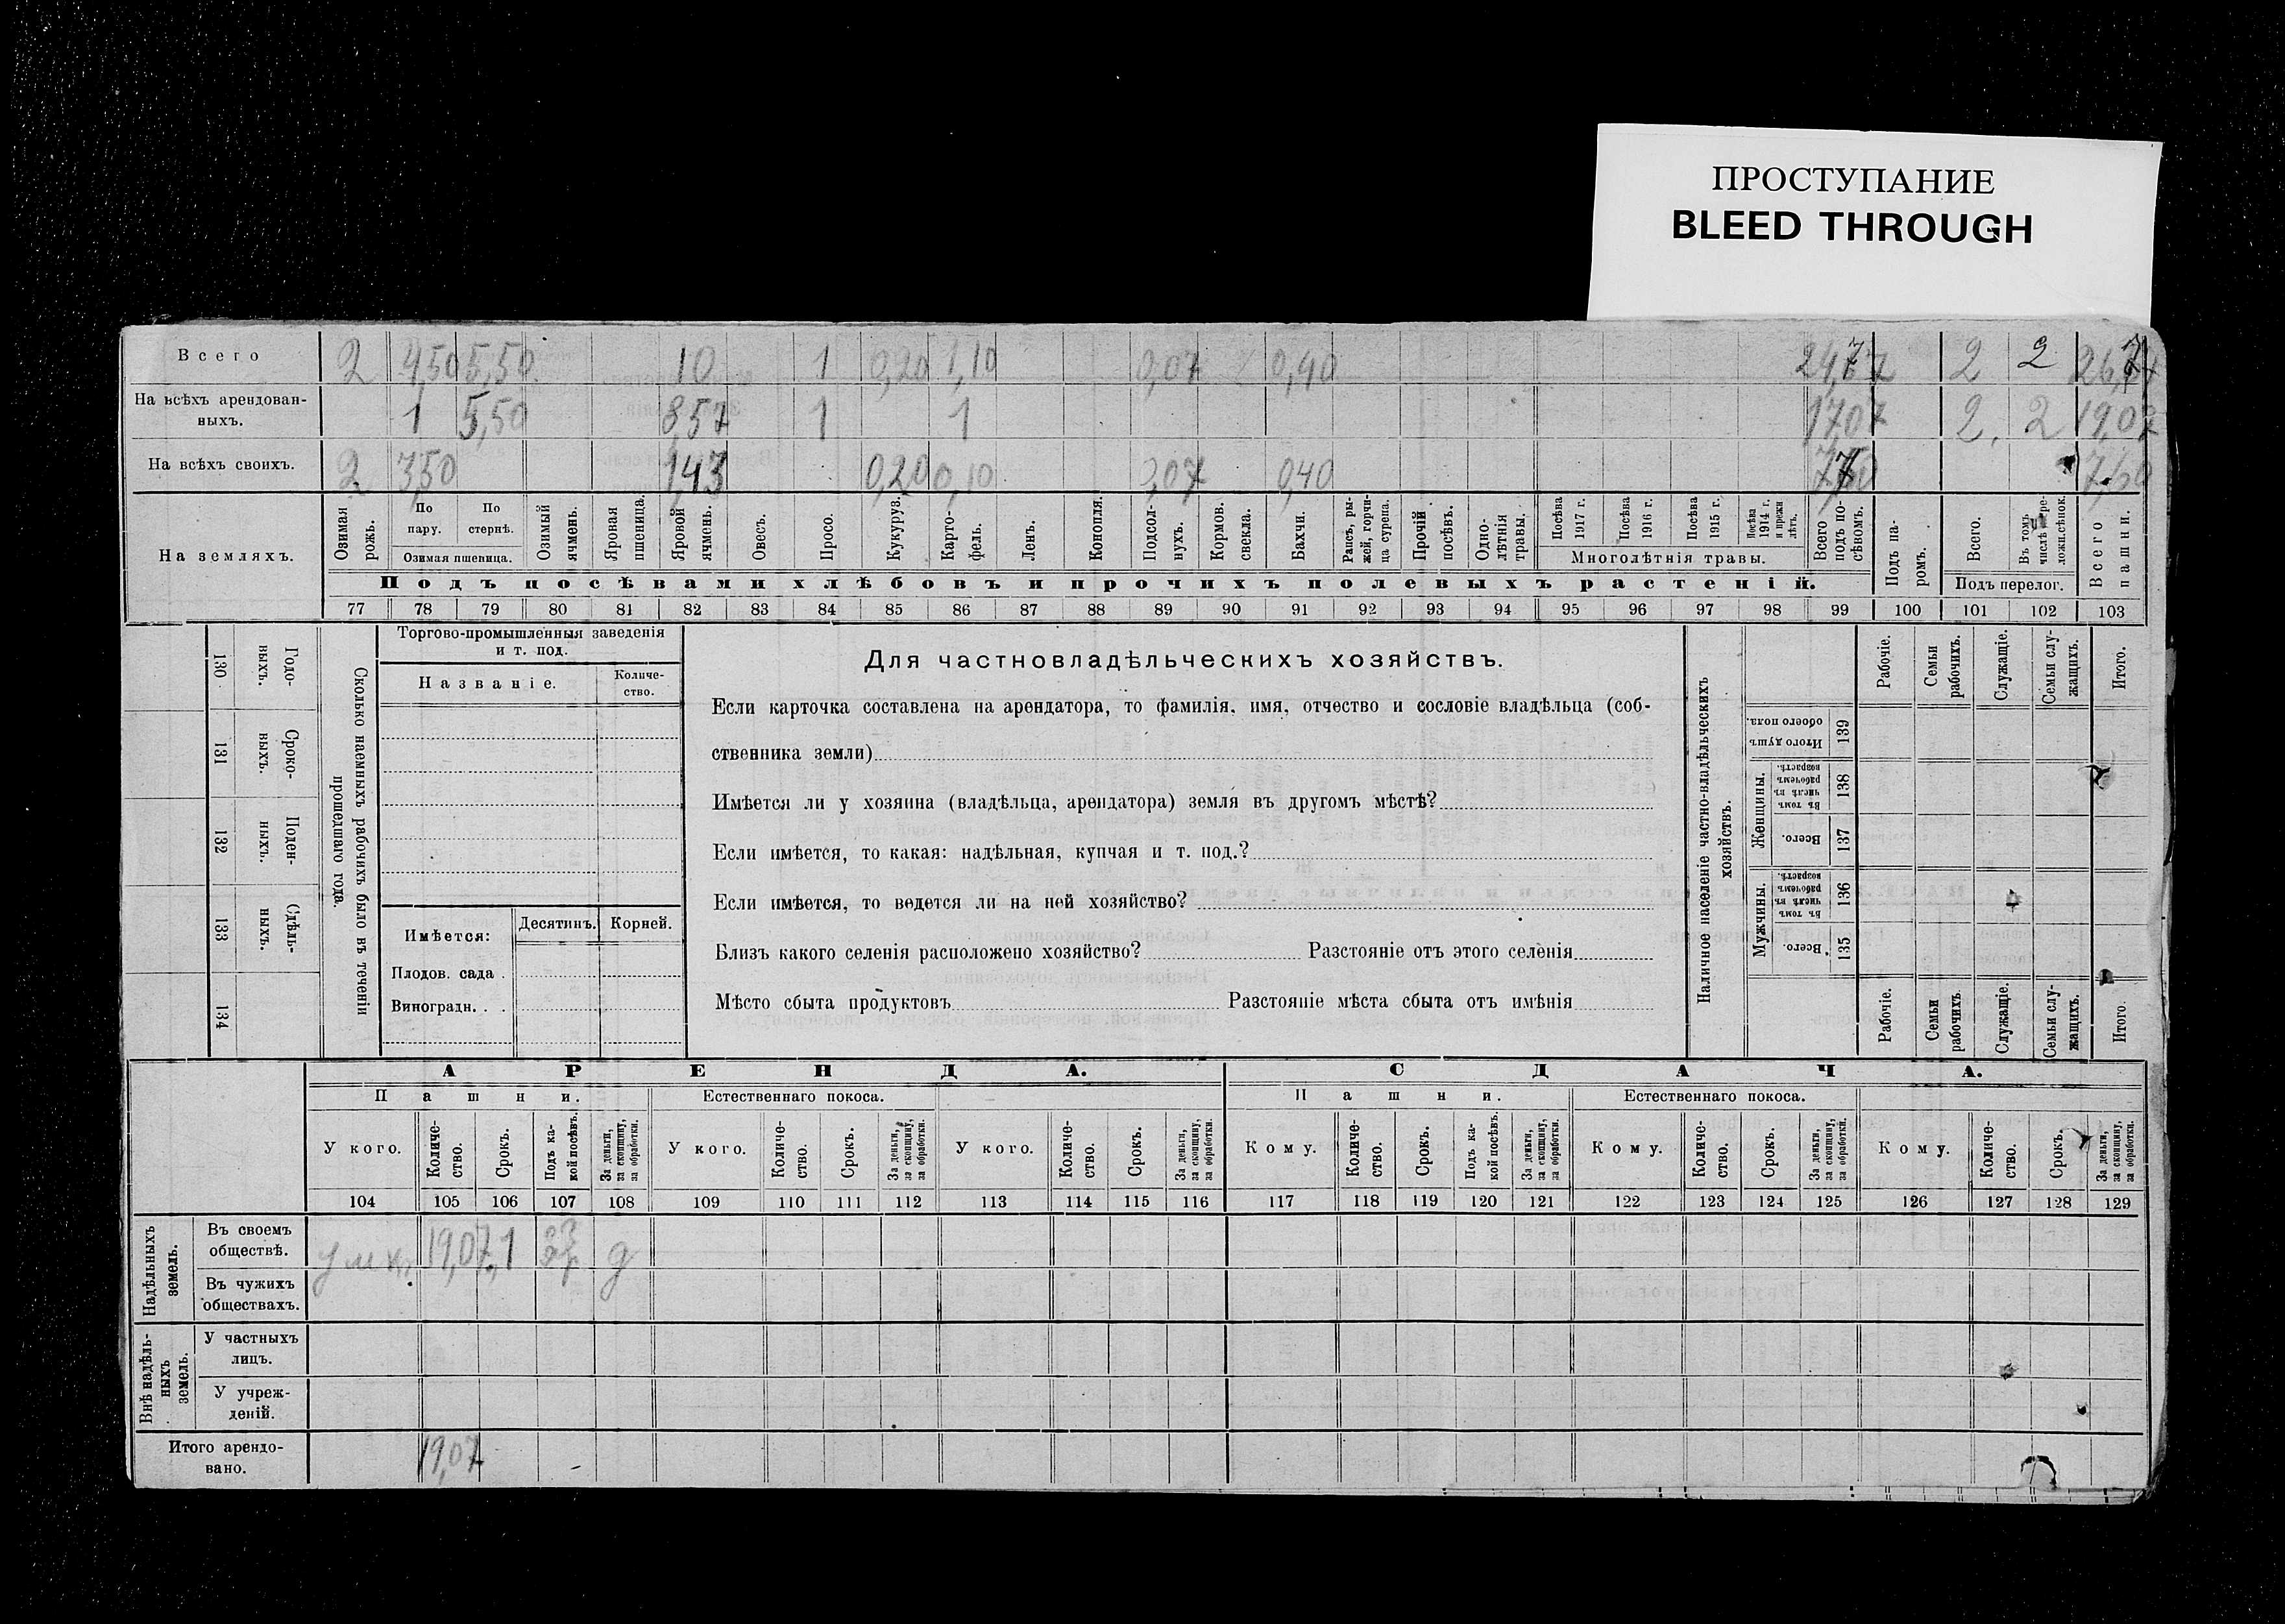 ПРОСТУПАНИЕ
BLEED THROUGH
Всего 2 4,50 5,50 10 1 0,20 1,10 0,07 0,40 2 2
На всѣхъ арендован-
ныхъ. 1 5,50 857 1 1 1707 2 2 19,07
На всѣхъ своихъ. 2 3,50 1,43 0,20 0,10 0,07 0,40
На земляхъ.
Озимая рожь.
По пару.
По стернѣ.
Озимая пшеница.
Озимый ячмень.
Яровая пшеница.
Яровой ячмень.
Овесъ.
Просо.
Кукуруз.
Карто-
фель.
Ленъ.
Конопля.
Подсол-
нухъ.
Кормов. свекла.
Бахчи.
Рапсъ, ры-
жей, горчи-
ца сурепа.
Прочій посѣвъ.
Одно-
лѣтнія травы.
Посѣва 1917 г.
Посѣва 1916 г.
Посѣва 1915 г.
Посѣва 1914 г. и прежн. лѣтъ.
Многолѣтнія травы.
Всего подъ по-
сѣвомъ.
Подъ па-
ромъ.
Всего.
Въ томъ числѣ пере-
ложн. сѣнок.
Подъ перелог.
Всего пашни.
Подъ посѣвами хлѣбовъ и прочихъ полевыхъ растеній.
77 78 79 80 81 82 83 84 85 86 87 88 89 90 91 92 93 94 95 96 97 98 99 100 101 102 103
130 Годо-
выхъ.
131 Сроко-
выхъ.
132 Поден-
ныхъ.
133 Сдѣль-
ныхъ.
134
Сколько наемныхъ рабочихъ было въ теченіи
прошедшаго года.
Торгово-промышленныя заведенія
и т. под.
Названіе.
Количе-
ство.
Имѣется:
Десятинъ. Корней.
Плодов. сада .
Виноградн. . .
Для частновладѣльческихъ хозяйствъ.
Если карточка составлена на арендатора, то фамилія, имя, отчество и сословіе владѣльца (соб-
ственника земли)
Имѣется ли у хозяина (владѣльца, арендатора) земля въ другомъ мѣстѣ?
Если имѣется, то какая: надѣльная, купчая и т. под.?
Если имѣется, то ведется ли на ней хозяйство?
Близъ какого селенія расположено хозяйство? Разстояніе отъ этого селенія
Мѣсто сбыта продуктовъ Разстояніе мѣста сбыта отъ имѣнія
Наличное населеніе частно-владѣльческихъ
хозяйствъ.
Рабочіе.
Семьи рабочихъ.
Служащіе.
Семьи слу-
жащихъ.
Итого.
Итого душъ обоего пола. 139
Женщины.
Въ томъ числѣ въ рабочемъ возрастѣ. 138
Всего. 137
Мужчины.
Въ томъ числѣ въ рабочемъ возрастѣ. 136
Всего. 135
Рабочіе.
Семьи рабочихъ.
Служащіе.
Семьи слу-
жащихъ.
Итого
АРЕНДА. СДАЧА.
Пашни. Естественнаго покоса. Пашни. Естественнаго покоса.
У кого. Количе-
ство. Срокъ. Подъ ка-
кой посѣвъ. За деньги, за скопщину, за обработки.
У кого. Количе-
ство. Срокъ. За деньги, за скопщину, за обработки.
У кого. Количе-
ство. Срокъ. За деньги, за скопщину, за обработки.
Кому. Количе-
ство. Срокъ. Подъ ка-
кой посѣвъ. За деньги, за скопщину, за обработки.
Кому. Количе-
ство. Срокъ. За деньги, за скопщину, за обработки.
Кому. Количе-
ство. Срокъ. За деньги, за скопщину, за обработки.
104 105 106 107 108 109 110 111 112 113 114 115 116 117 118 119 120 121 122 123 124 125 126 127 128 129
Надѣльныхъ
земель.
Въ своемъ
обществѣ. 19,07 1 д
Въ чужихъ
обществахъ.
Внѣ надѣль-
ныхъ
земель.
У частныхъ
лицъ.
У учреж-
деній.
Итого арендо-
вано. 19,07